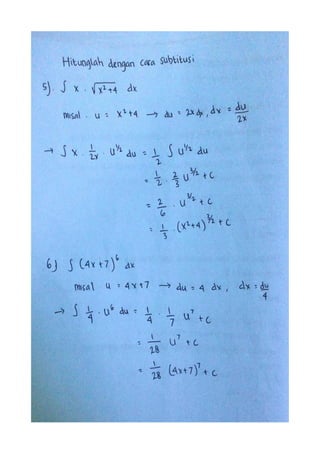 Hitunglah dengan cara subtitusi
5). ∫ x . √x²+4 dx
misal . u = x²+4 → du = 2x dx , dx = du/2x
→ ∫ x . 1/2x . u^½ du = 1/2 ∫ u^½ du
= 1/2 . 2/3 u^3/2 + C
= 2/6 . u^3/2 + C
= 1/3 . (x²+4)^3/2 + C
6) ∫ (4x+7)⁶ dx
misal . u = 4x+7 → du = 4 dx , dx = du/4
→ ∫ 1/4 . u⁶ du = 1/4 . 1/7 u⁷ + C
= 1/28 u⁷ + C
= 1/28 (4x+7)⁷ + C